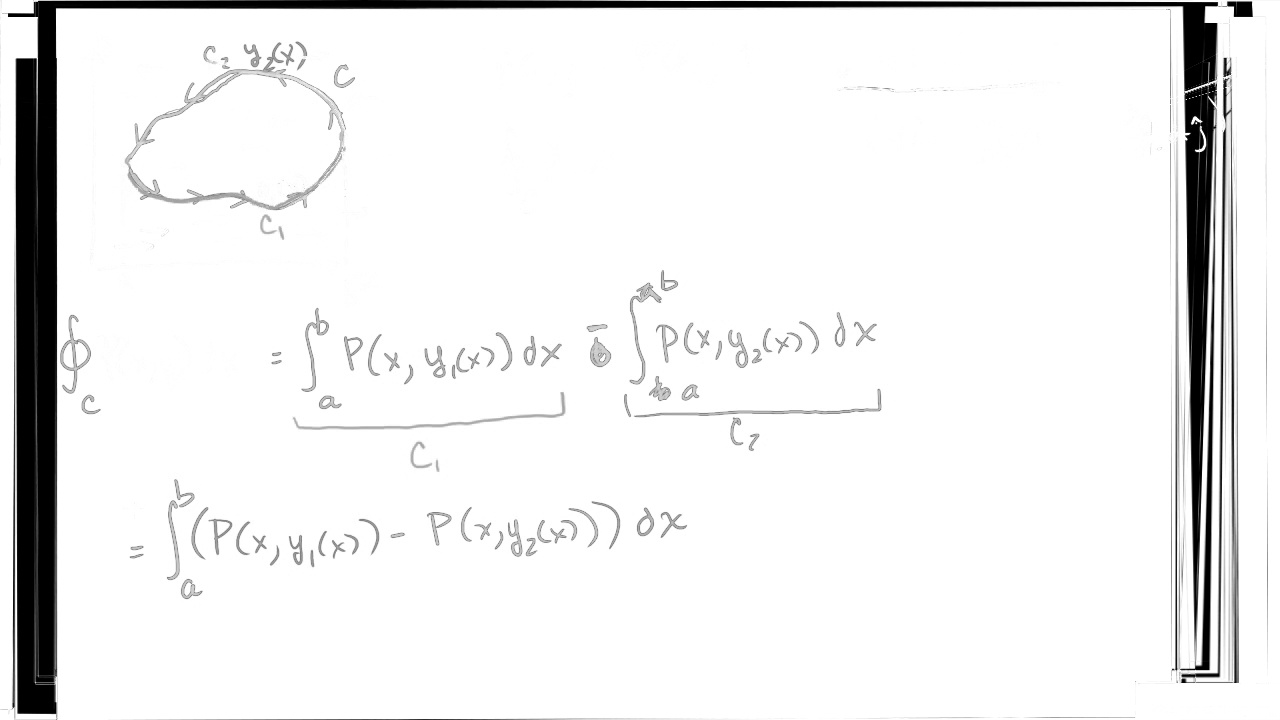 C₂ y₂(x) C
C₁
∮_C = ∫_a^b P(x, y₁(x)) dx - ∫_a^b P(x, y₂(x)) dx
C₁ C₂
= ∫_a^b (P(x, y₁(x)) - P(x, y₂(x))) dx
ĵ